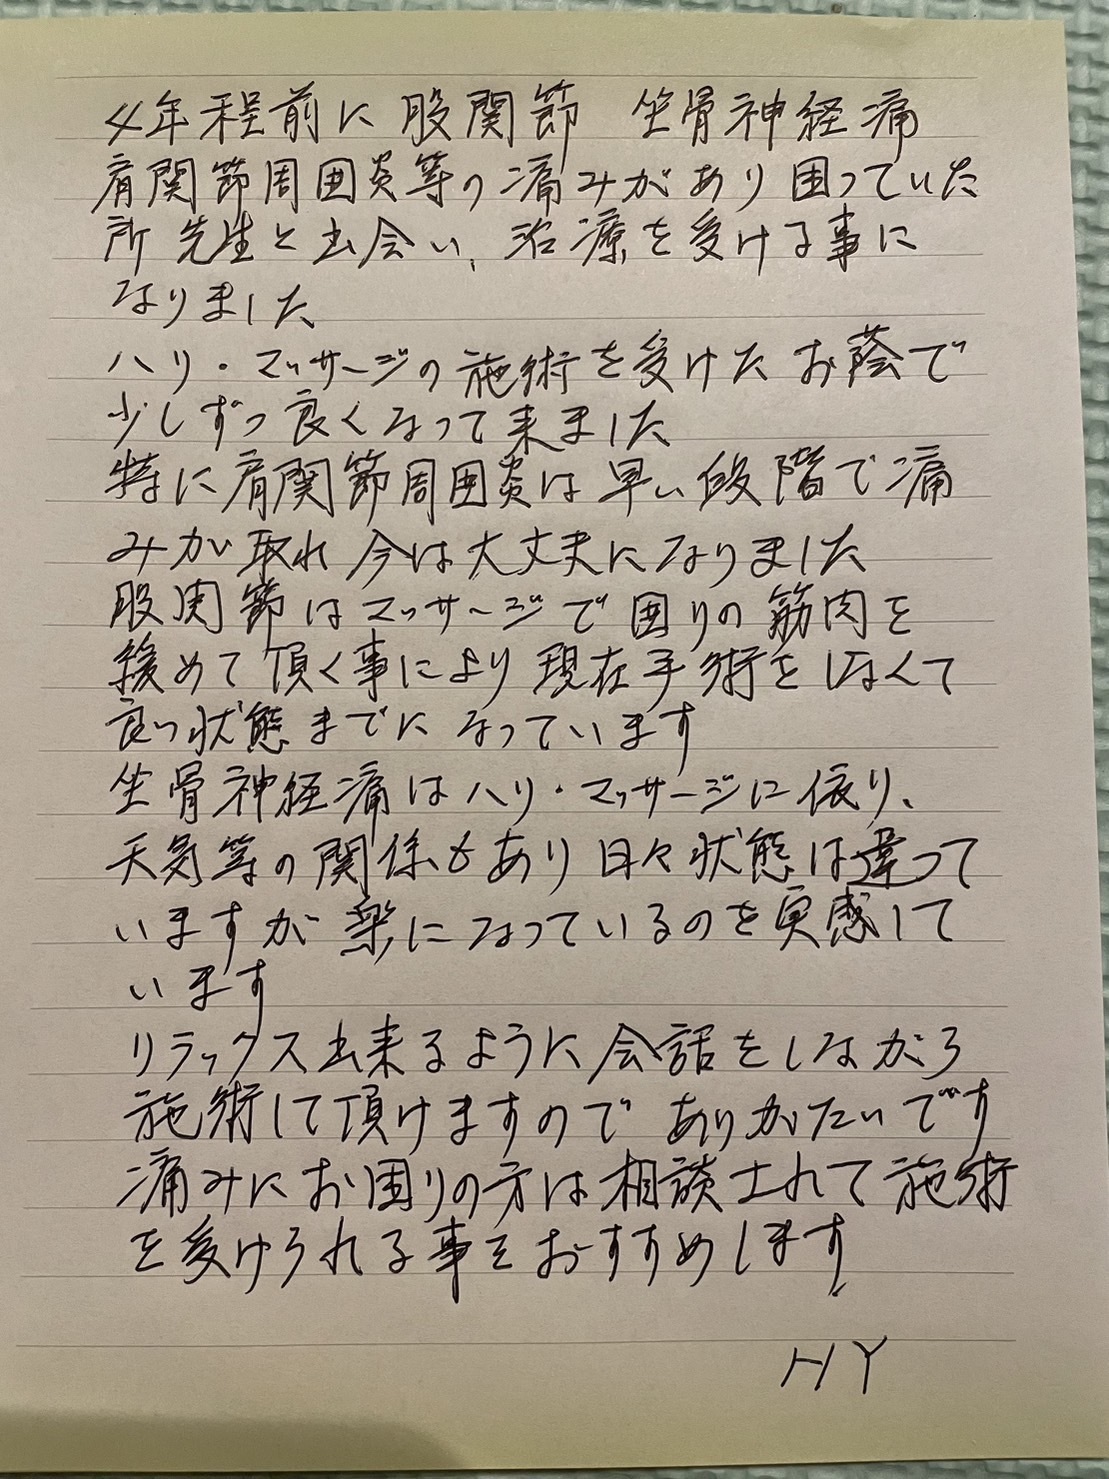 4年程前に股関節 坐骨神経痛
肩関節周囲炎等の痛みがあり困っていた
所 先生と出会い、治療を受ける事に
なりました
ハリ・マッサージの施術を受けたお蔭で
少しずつ良くなって来ました
特に肩関節周囲炎は早い段階で痛
みが取れ 今は大丈夫になりました
股関節はマッサージで囲りの筋肉を
緩めて頂く事により現在手術をしなくて
良い状態までになっています
坐骨神経痛はハリ・マッサージに依り、
天気等の関係もあり日々状態は違って
いますが楽になっているのを実感して
います
リラックス出来るように会話をしながら
施術して頂けますのでありがたいです
痛みにお困りの方は相談されて施術
を受けられる事をおすすめします
HY